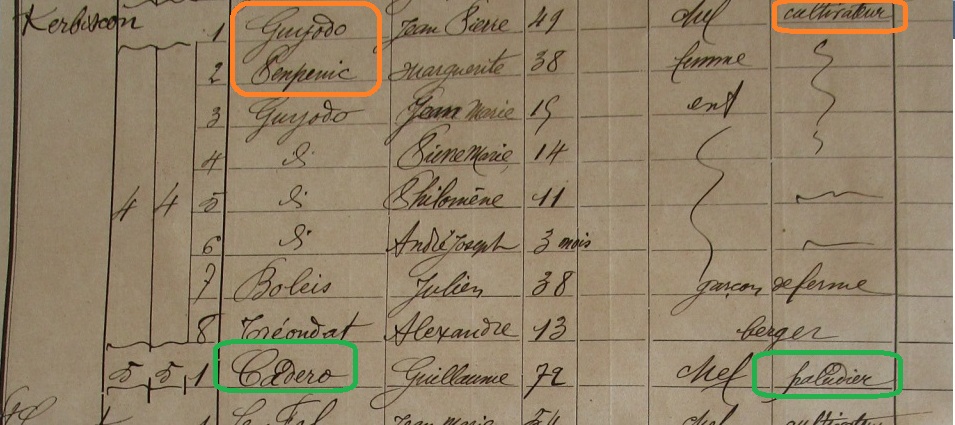 Kerbiscon 1 Guyodo Jean Pierre 49 chef cultivateur
2 Penpenic Marguerite 38 femme
3 Guyodo Jean Marie 15 enf
4 di Pierre Marie 14
4 4 5 di Philomène 11
6 di André Joseph 3 mois
7 Boleis Julien 38 garçon de ferme
8 Tréondat Alexandre 13 berger
5 5 1 Cadero Guillaume 72 chef paludier
1 Le Fal Jean Marie 54 chef cultivateur